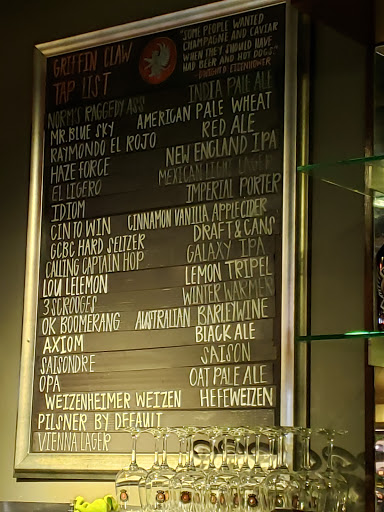 GRIFFIN CLAW
TAP LIST
"SOME PEOPLE WANTED
CHAMPAGNE AND CAVIAR
WHEN THEY SHOULD HAVE
HAD BEER AND HOT DOGS."
-DWIGHT D EISENHOWER
NORM'S RAGGEDY ASS INDIA PALE ALE
MR. BLUE SKY AMERICAN PALE WHEAT
RAYMONDO EL ROJO RED ALE
HAZE FORCE NEW ENGLAND IPA
EL LIGERO MEXICAN LIGHT LAGER
IDIOM IMPERIAL PORTER
CIN TO WIN CINNAMON VANILLA APPLE CIDER
GCBC HARD SELTZER DRAFT & CANS
CALLING CAPTAIN HOP GALAXY IPA
LOU LELEMON LEMON TRIPEL
3 SCROOGES WINTER WARMER
OK BOOMERANG AUSTRALIAN BARLEYWINE
AXIOM BLACK ALE
SAISONDRE SAISON
OPA OAT PALE ALE
WEIZENHEIMER WEIZEN HEFEWEIZEN
PILSNER BY DEFAULT
VIENNA LAGER